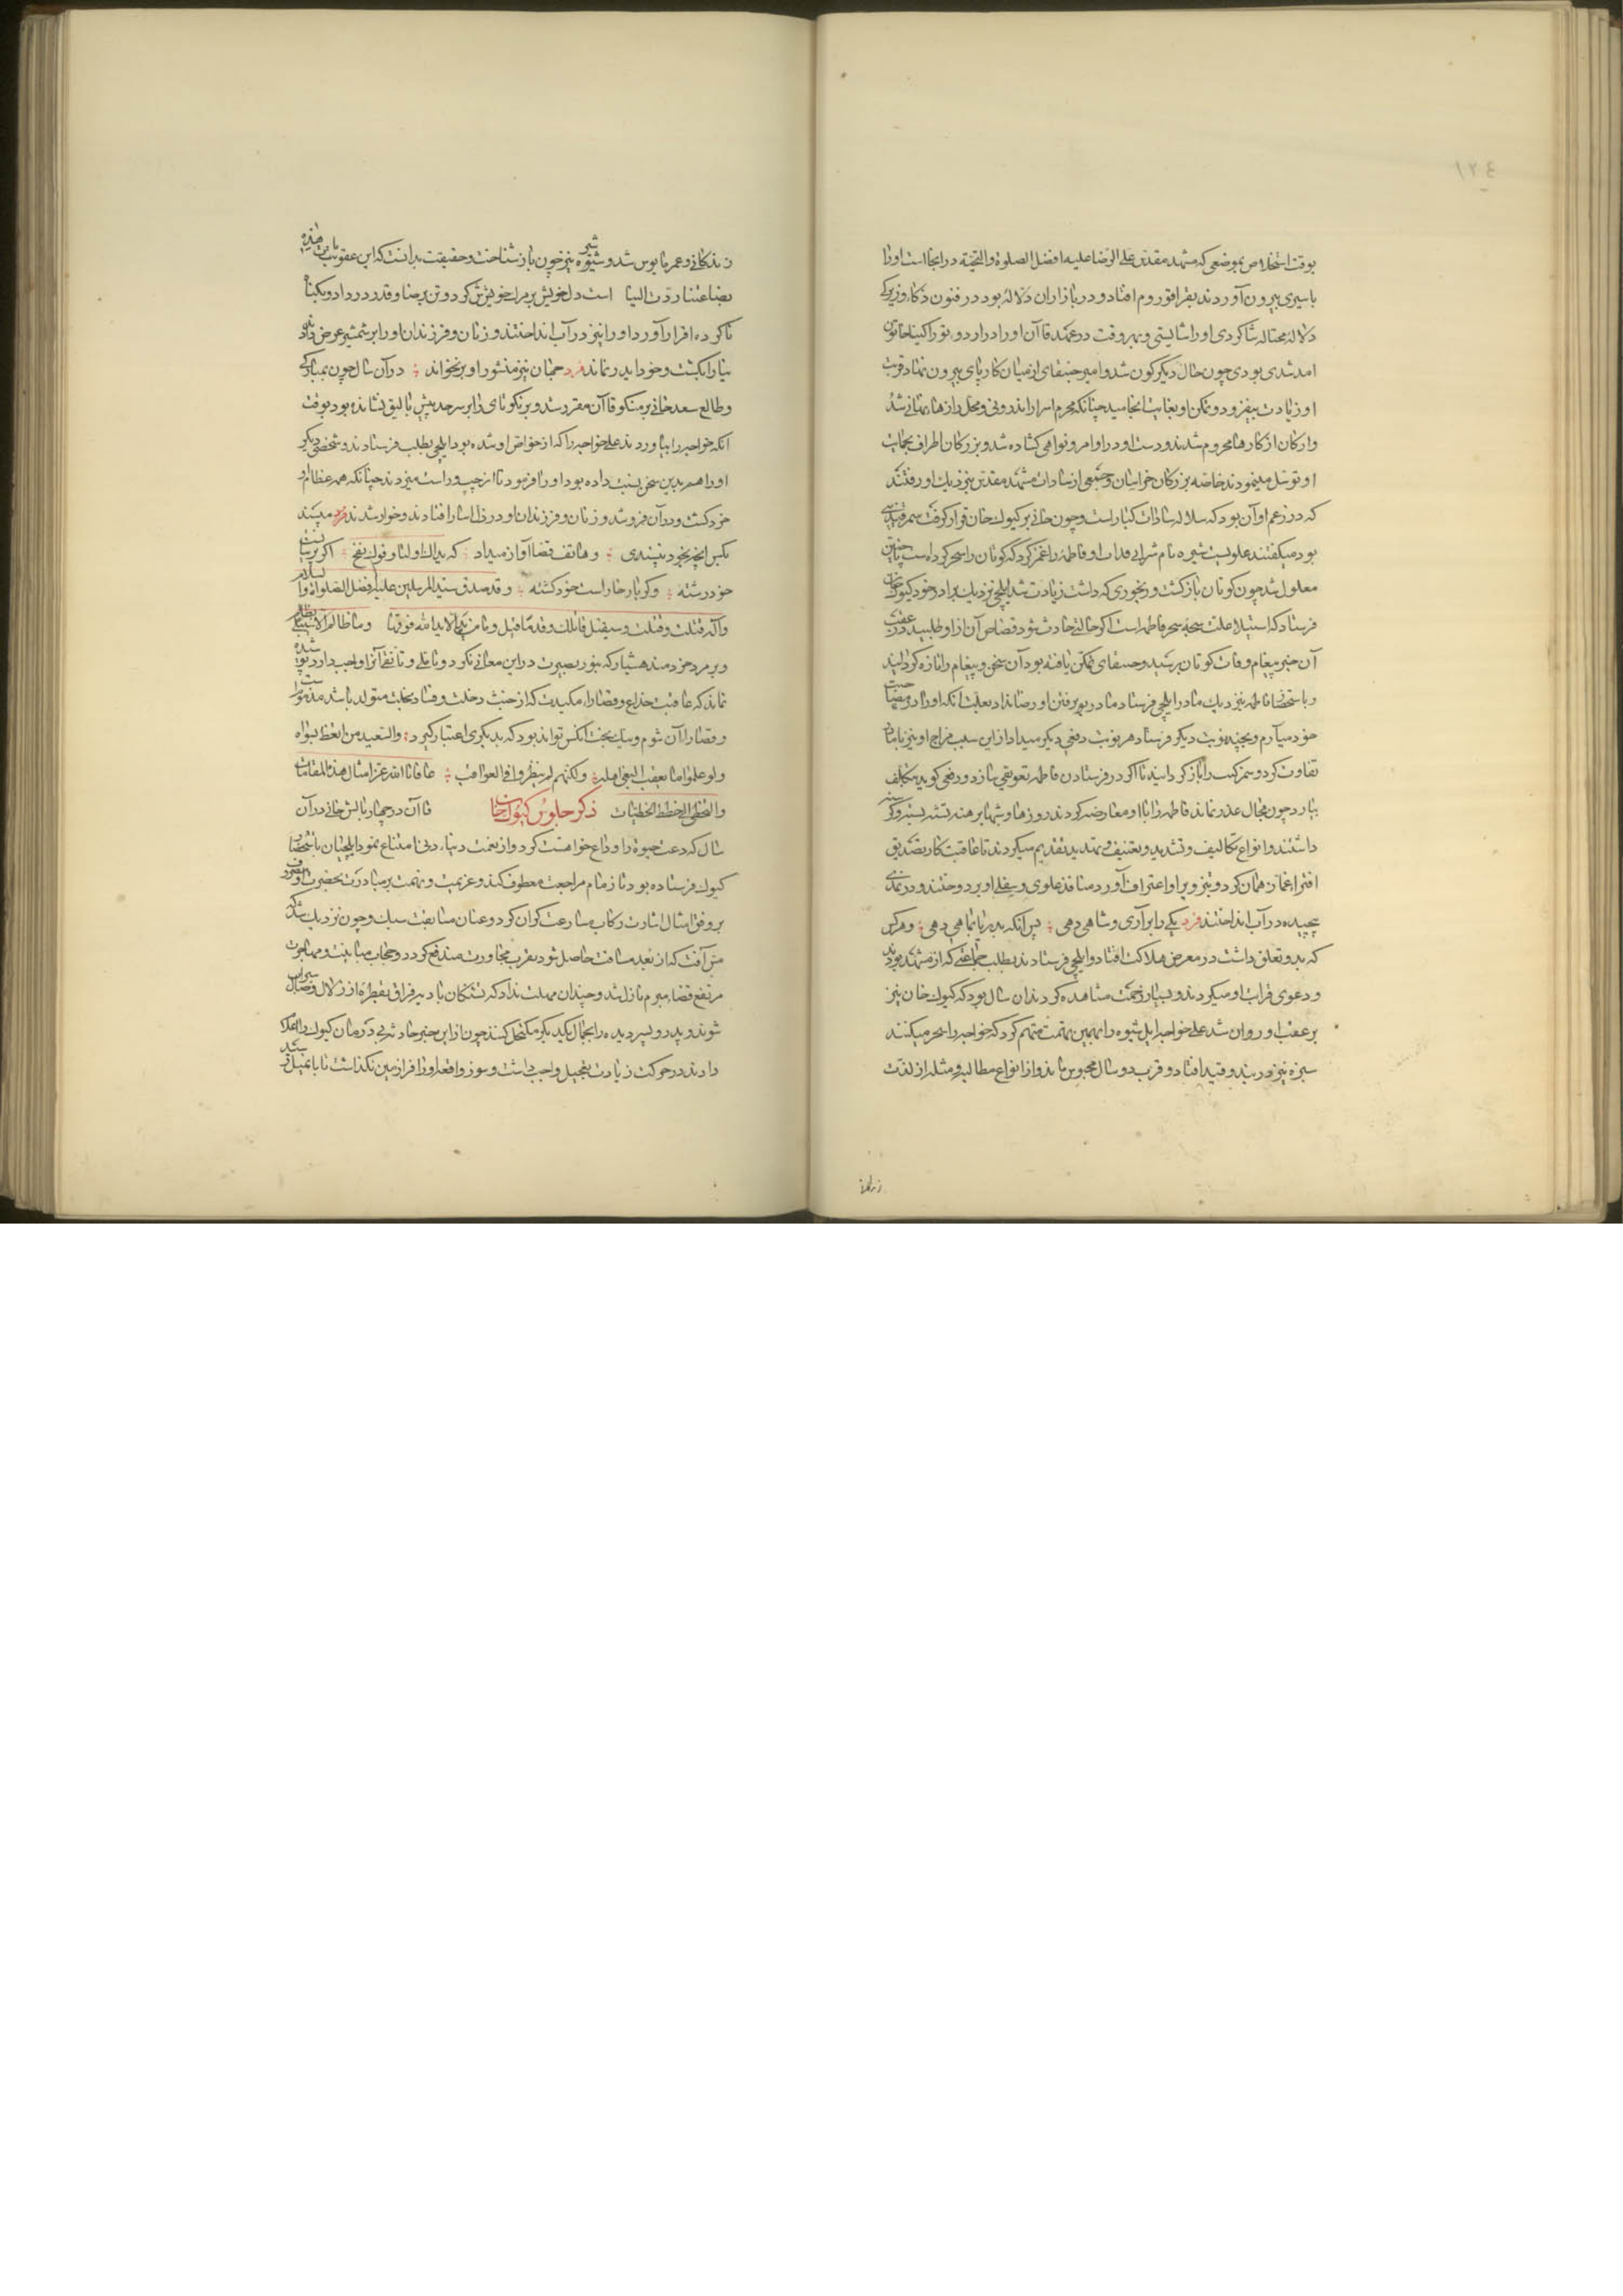 ١٢٤
بوقت استخلاص بموضعی که مشهد مقدس علی الرضا علیه افضل الصلوة والتحیة در انجا است او را
باسیری بیرون آوردند بقراقوروم افتاد و در بازار ان دلاله بود در فنون ذکا و زیرکی
دلاله محتاله شاکردی او را شایستی و بهر وقت در عهد قاآن او را در اردوی توراکینا خاتون
آمد شدی بودی چون حال دیکر کون شد و امیر جینقای از میان کار پای بیرون نهاد قربت
او زیادت بیفزود و تمکن او بغایت انجامید چنانکه محرم اسرار اندرونی و محل رازهاء نهانی شد
و ارکان از کارها محروم شدند و دست او در اوامر و نواهی کشاده شد و بزرکان اطراف بحمایت
او توسل مینمودند خاصه بزرکان خراسان و جمعی از سادات مشهد مقدس بنزدیك او رفتند
که در زعم او آن بود که سلاله سادات کبار است و چون خانی بر کیوك خان قرار کرفت سمرقندیی
بود میکفتند علویست شیره نام شرابی قداق او فاطمه را غمز کرد که کوتان را سحر کرده است تا چنین
معلول شد چون کوتان باز کشت و رنجوری که داشت زیادت شد ایلچی نزدیك برادر خود کیوك خان
فرستاد که استیلاء علت نتیجه سحر فاطمه است اکر حالتی حادث شود قصاص آن ازو طلبید در عقب
آن خبر پیغام وفات کوتان برسید و جینقای تمکن یافته بود آن سخن و پیغام را تازه کردانید
و باستحضار فاطمه بنزدیك مادر ایلچی فرستاد مادر بر رفتن او رضا نداد بعلت آنکه او را در مصاحبت
خود میآرم و بچند نوبت دیکر فرستاد هر نوبت دفعی دیکر میداد از این سبب مزاج او نیز با مادر
تفاوت کرد و سمرکیت را باز کردانید تا اکر در فرستادن فاطمه تعویقی سازد و دفعی کوید بتکلیف
بیارد چون مجال عذر نماند فاطمه را با او معارضه کردند روزها و شبها برهنه تشنه بسته و کرسنه
داشتند و انواع تکالیف و تشدید و تعنیف و تهدید تقدیم میکردند تا عاقبت کار بتصدیق
افترا غماز همان کرد و بتزویر او اعتراف آورد منافذ علوی و سفلی او بر دوختند و در نمدی
پیچیده در آب انداختند فرد یکی را برآری و شاهی دهی پس آنکه بدریا بماهی دهی و هرکس
که بدو تعلق داشت در معرض هلاکت افتاد و ایلچی فرستادند بطلب جماعتی که از مشهد بودند
و دعوی قرابت او میکردند و بسیار زحمت مشاهده کردند ان سال بود که کیوك خان نیز
بر عقب او روان شد علی خواجه ایل شیره را بهمین تهمت متهم کرد که خواجه را سحر میکند
شیره نیز در بند و قید افتاد و قریب دو سال محبوس ماند و از انواع مطالبه و مثله از لذت
زندکانی
زندکانی و عمر مایوس شد و شیره نیز چون باز شناخت و حقیقت بدانست که این عقوبت هذه
بضاعتنا ردت الینا است دل خویش بر مراد خویش خوش کرد و تن برضا و قدر در داد و بکناه
ناکرده اقرار آورد او را نیز در آب انداختند و زنان و فرزندان او را بر شمشیر عرض دادند
بسیار بکشت و خود ایدر نماند فرد جهان نیز منشور او بر نخواند در آن سال چون بمبارکی
و طالع سعد خانی بر منکو قاآن مقرر شد و برنکوتای را بر سرحد بیش بالیق نشانده بود بوقت
آنکه خواجه را بیاوردند علی خواجه را که از خواص او شده بود ایلچی بطلب فرستادند و شخصی دیکر
او را هم بدین سخن نسبت داده بود او را فرمود تا از چپ و راست میزدند چنانکه همه عظام او
خرد کشت و در آن فرو شد و زنان و فرزندان او در ذل اسار افتادند و خوار شدند فرد مپسند
بکس آنچه بخود نپسندی و هاتف قضا آواز میداد که یداك اوکتا و فوك نفخ اکر پرنیانست
خود رشته و کر بار خار است خود کشته و قد صدق سید المرسلین علیه افضل الصلوات والسلام
و اکد قتلت و قتلت و سیقتل قاتلك و قدما قیل و ما من ید الا ید الله فوقها وما ظالم الا سیبلی بظالم
و بر مرد خردمند هشیار که بنور بصیرت در این معانی نکرد و تاملی و تانقی آنرا واجب دارد پوشیده
نماند که عاقبت خداع و قصارای مکیدت که از خبث دخلت و فساد نحلت متولد باشد مذموم است
و قصارا آن شوم و نیك بخت آنکس تواند بود که بدیکری اعتبار کیرد والسعید من اتعظ بسواه
ولو علموا ما یعقب البغی اهله ولکنهم لم ینظروا فی العواقب عافانا الله عن امثال هذه المقامات
والتخطی الی خطط الخطیات ذکر جلوس کیوك خان قاآن در چهار بالش خانی در آن
سال که دعت حیوة را وداع خواست کرد و از نعمت دنیاء دنی امتناع نمود ایلچیان باستحضار
کیوك فرستاده بود تا زمام مراجعت معطوف کند و عزیمت و نهمت بر مبادرت بحضرت او مصروف
بر وفق امثال اشارت رکاب مسارعت کران کرد و عنان مسابقت سبك و چون نزدیك شد که
مس آفت که از بعد مسافت حاصل شود بقرب مجاورت مندفع کردد و حجاب مباینت و مهاجرت
مرتفع قضاء مبرم نازل شد و چندان مهلت نداد که تشنکان بادیه فراق بقطرهٔ از زلال وصال سیراب
شوند و پدر و پسر دیده را بجمال یکدیکر مکتحل کنند چون از این خبر حادثه بی درمان کیوك را اعلام
دادند در حرکت زیادت تعجیل واجب داشت و سوز واقعه او را قرار زمین نکذاشت تا بایمیل رسید